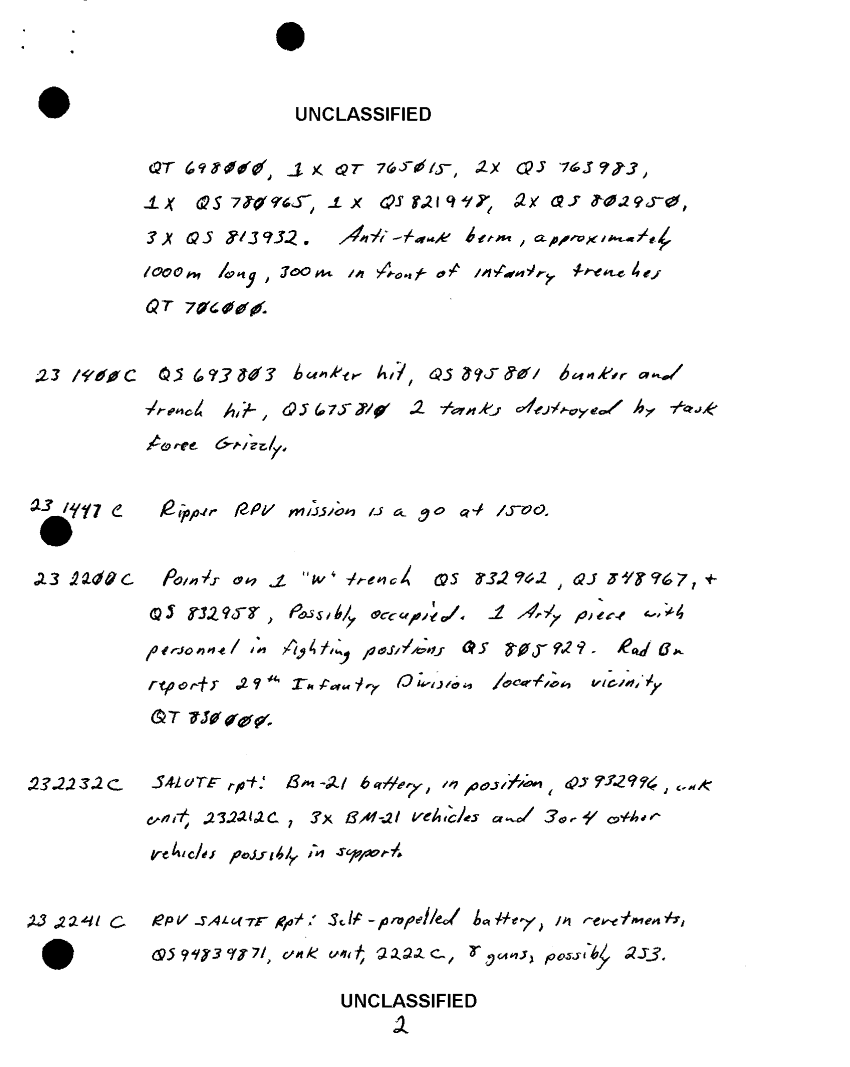 UNCLASSIFIED
QT 698000, 1 X QT 765015, 2X QS 763983,
1 X QS 780965, 1 X QS 821948, 2X QS 802950,
3 X QS 813932. Anti-tank berm, approximately
1000m long, 300m in front of infantry trenches
QT 706000.
23 1400C QS 693803 bunker hit, QS 895801 bunker and
trench hit, QS 675810 2 tanks destroyed by task
Force Grizzly.
23 1447 C Ripper RPV mission is a go at 1500.
23 2200C Points on 1 "W" trench QS 832962, QS 848967, +
QS 832958, Possibly occupied. 1 Arty piece with
personnel in fighting positions QS 805929. Rad Bn
reports 29th Infantry Division location vicinity
QT 830000.
232232C SALUTE rpt: Bm-21 battery, in position, QS 932996, unk
unit, 232212C, 3x BM-21 vehicles and 3 or 4 other
vehicles possibly in support.
23 2241 C RPV SALUTE Rpt: Self-propelled battery, in revetments,
QS94839871, unk unit, 2222C, 8 guns, possibly 2S3.
UNCLASSIFIED
2